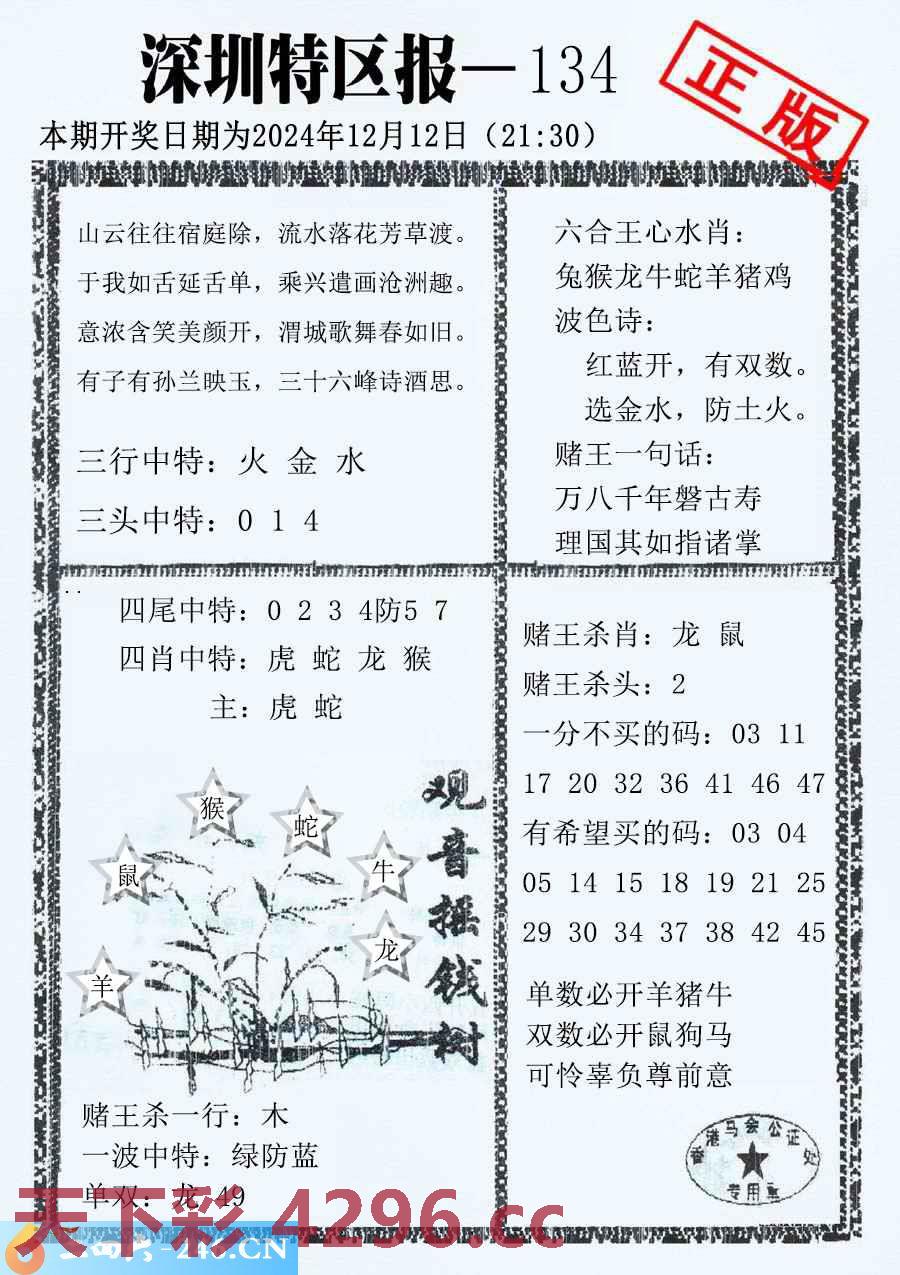 深圳特区报—134
正版
本期开奖日期为2024年12月12日（21:30）
山云往往宿庭除，流水落花芳草渡。
于我如舌延舌单，乘兴遣画沧洲趣。
意浓含笑美颜开，渭城歌舞春如旧。
有子有孙兰映玉，三十六峰诗酒思。
三行中特：火 金 水
三头中特：0 1 4
六合王心水肖：
兔猴龙牛蛇羊猪鸡
波色诗：
红蓝开，有双数。
选金水，防土火。
赌王一句话：
万八千年磐古寿
理国其如指诸掌
四尾中特：0 2 3 4防5 7
四肖中特：虎 蛇 龙 猴
主：虎 蛇
猴
蛇
鼠
牛
龙
羊
观音摇钱树
赌王杀一行：木
一波中特：绿防蓝
单双：龙 49
赌王杀肖：龙 鼠
赌王杀头：2
一分不买的码：03 11
17 20 32 36 41 46 47
有希望买的码：03 04
05 14 15 18 19 21 25
29 30 34 37 38 42 45
单数必开羊猪牛
双数必开鼠狗马
可怜辜负尊前意
香港马会公证处
专用章
天下彩 4296.cc
246.CN